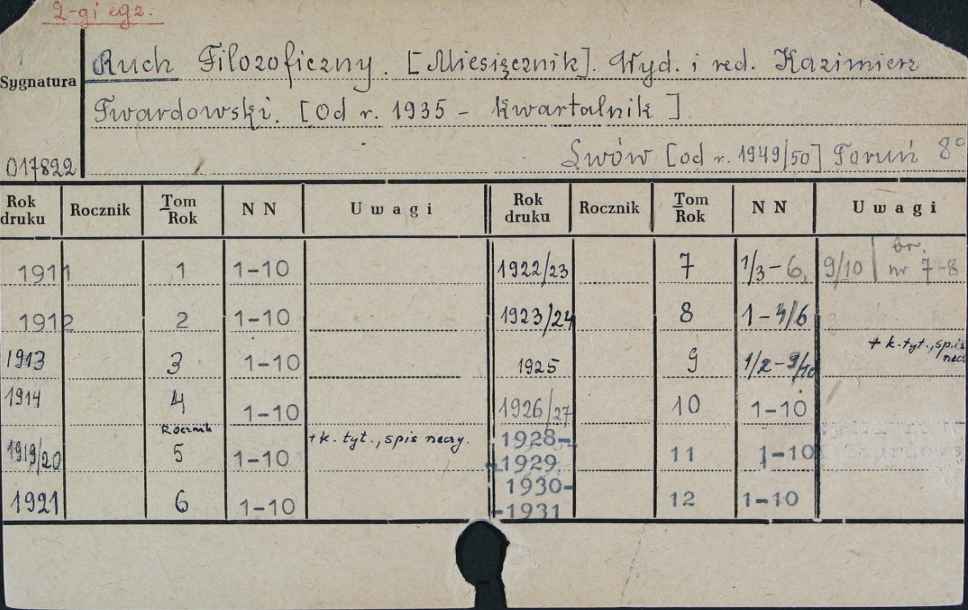 2-gi egz.
Ruch Filozoficzny. [Miesięcznik]. Wyd. i red. Kazimierz
Sygnatura
Twardowski. [Od r. 1935 - Kwartalnik]
017822
Lwów [od r. 1949/50] Toruń 8°
Rok druku Rocznik Tom Rok NN Uwagi Rok druku Rocznik Tom Rok NN Uwagi
1911 1 1-10 1922/23 7 1/3-6, 9/10 | br. nr 7-8
1912 2 1-10 1923/24 8 1-4/6
1913 3 1-10 1925 9 1/2-9/10 + k. tyt., spis
1914 4 1-10 1926/27 10 1-10
1919/20 Rocznik 5 1-10 + k. tyt., spis rzeczy. 1928-1929 11 1-10
1921 6 1-10 1930-1931 12 1-10